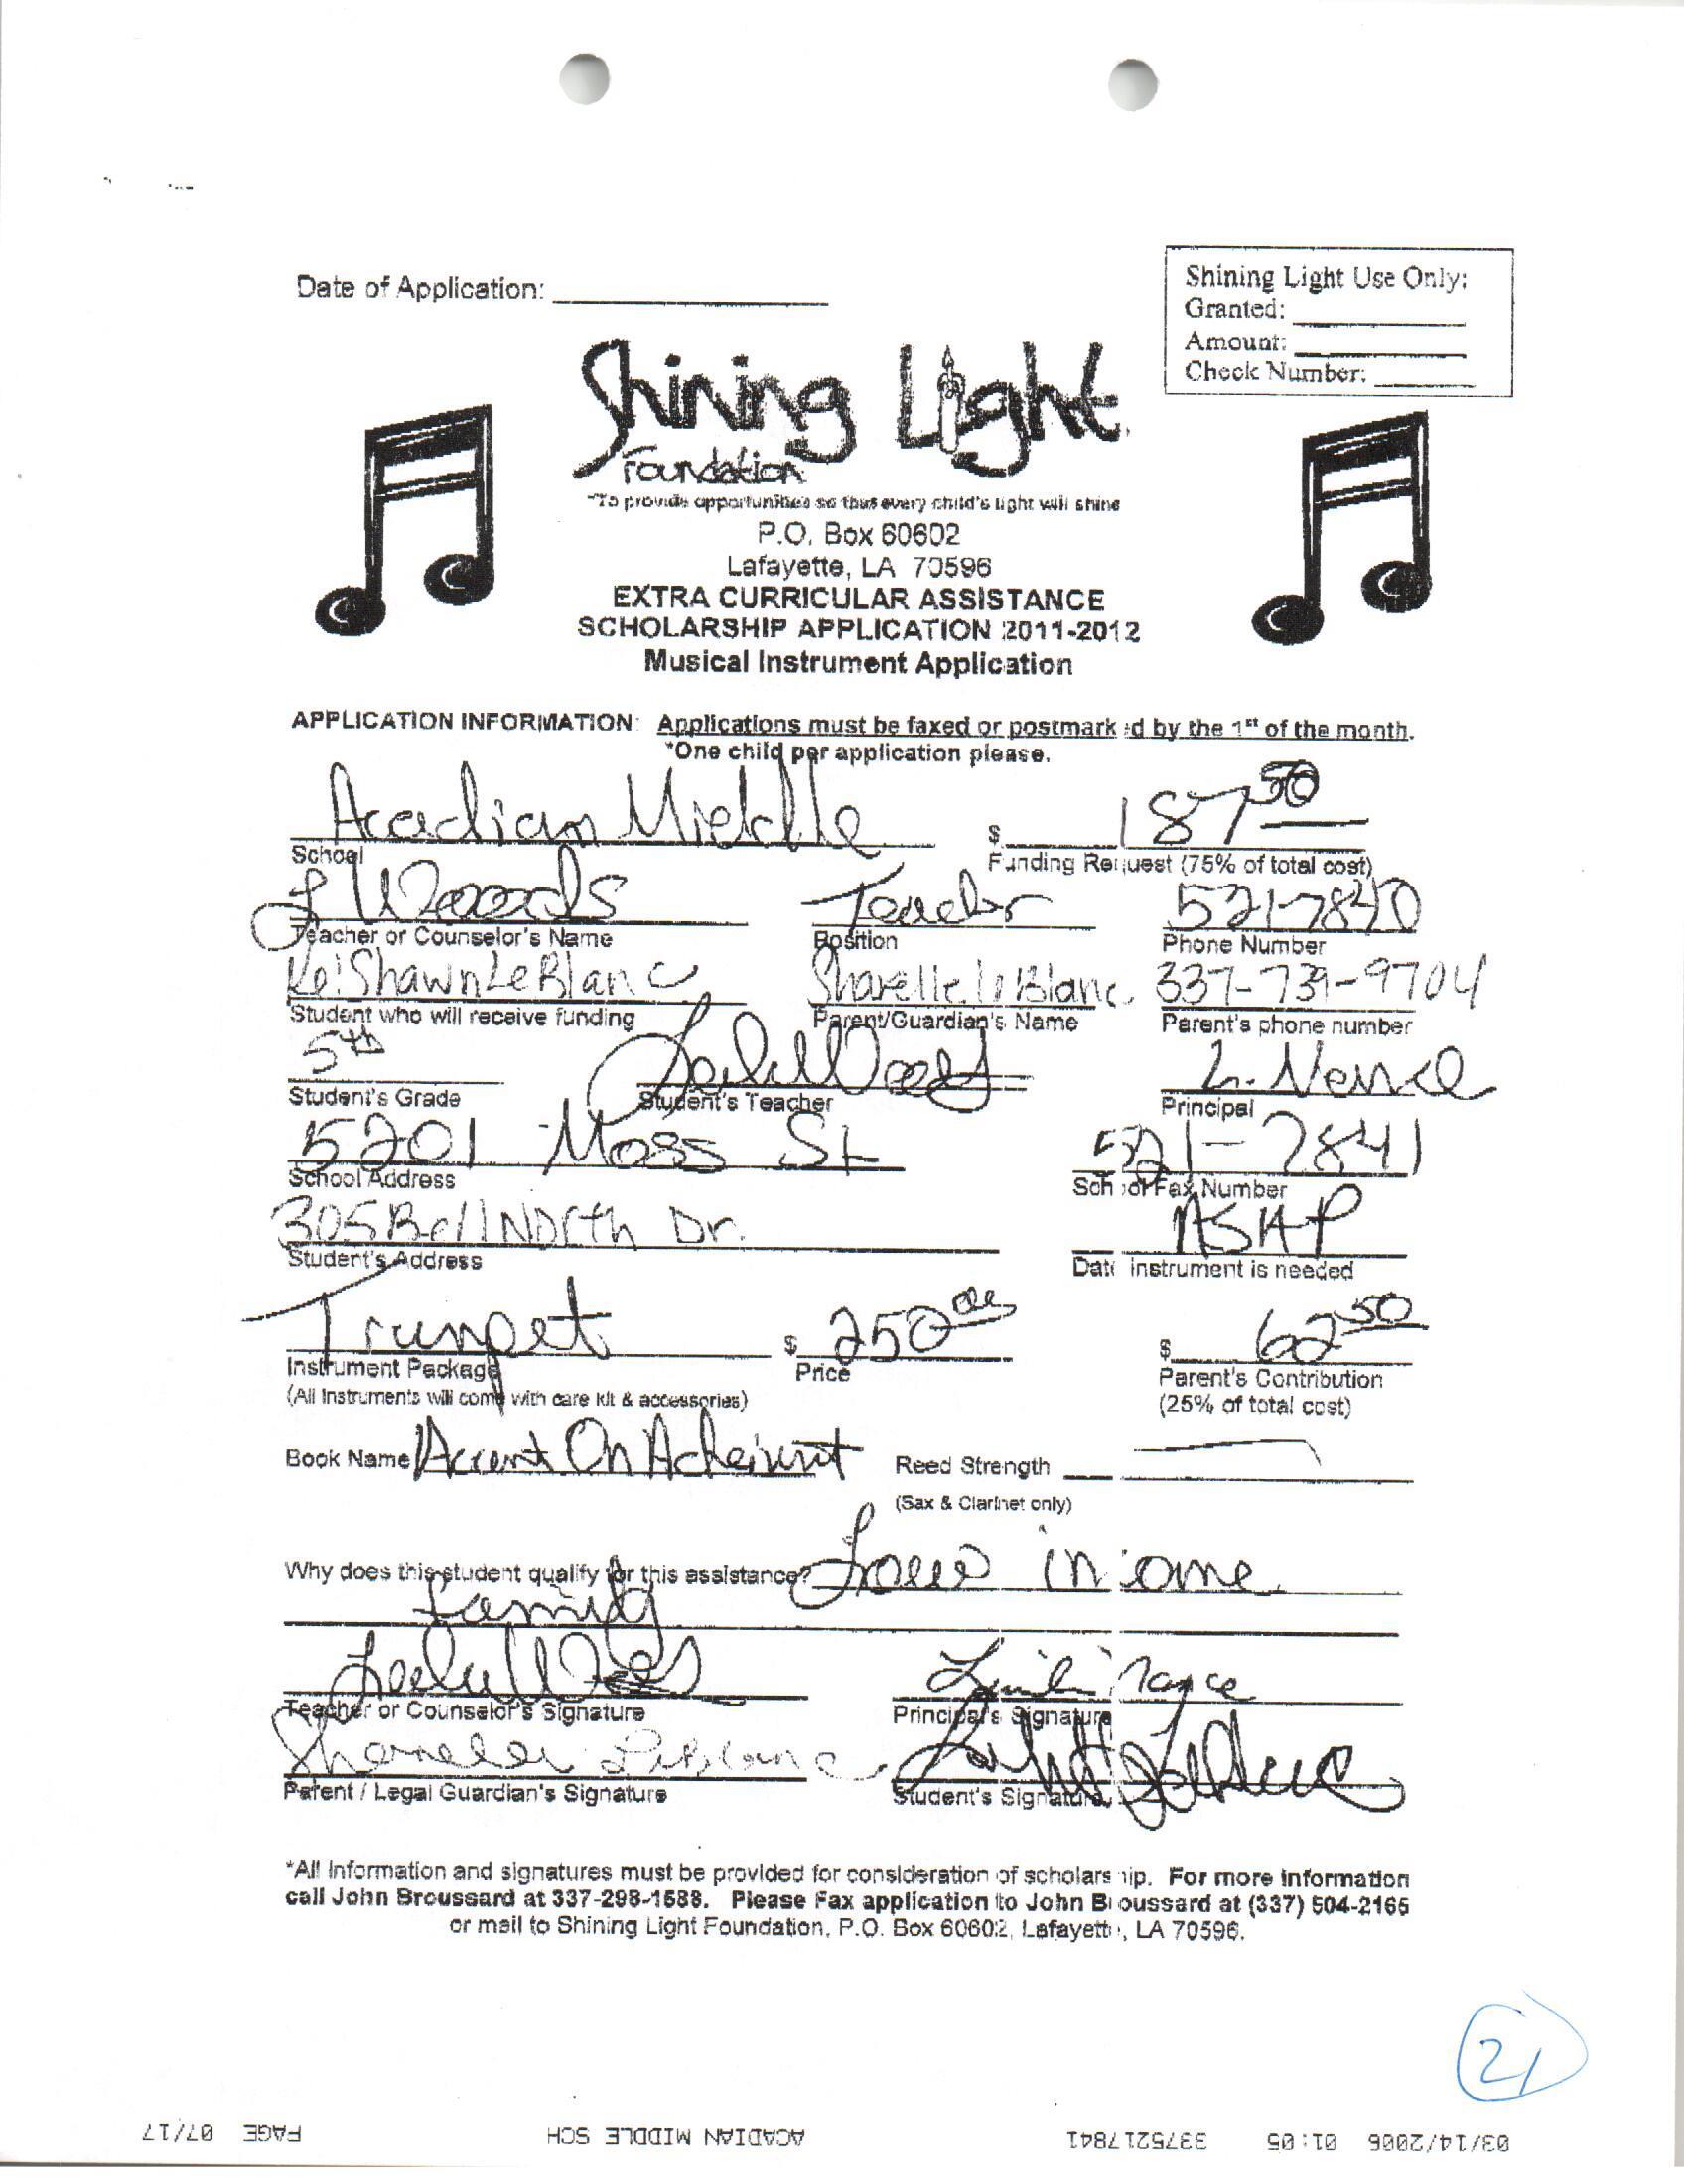 Date of Application:
Shining Light Use Only:
Granted:
Amount:
Check Number:
Shining Light
Foundation
"To provide opportunities so that every child's light will shine
P.O. Box 60602
Lafayette, LA 70596
EXTRA CURRICULAR ASSISTANCE
SCHOLARSHIP APPLICATION 2011-2012
Musical Instrument Application
APPLICATION INFORMATION: Applications must be faxed or postmarked by the 1st of the month.
*One child per application please.
Acadian Middle $ 187 50
School Funding Request (75% of total cost)
L Woods Teacher 521-7840
Teacher or Counselor's Name Position Phone Number
Ke'Shawn LeBlanc Sharelle LeBlanc 337-739-9704
Student who will receive funding Parent/Guardian's Name Parent's phone number
5th Woods L. Nance
Student's Grade Student's Teacher Principal
5201 Moss St 521-7841
School Address School Fax Number
305 Bell North Dr. ASAP
Student's Address Date instrument is needed
Trumpet $ 250 00 $ 62 50
Instrument Package Price Parent's Contribution
(All Instruments will come with care kit & accessories) (25% of total cost)
Book Name Accent On Reed Strength
(Sax & Clarinet only)
Why does this student qualify for this assistance? Low income
family
Teacher or Counselor's Signature Principal's Signature
LeBlanc
Parent / Legal Guardian's Signature Student's Signature
*All information and signatures must be provided for consideration of scholarship. For more information
call John Broussard at 337-298-1588. Please Fax application to John Broussard at (337) 504-2165
or mail to Shining Light Foundation, P.O. Box 60602, Lafayette, LA 70596.
21
03/14/2006 01:05 3375217841 ACADIAN MIDDLE SCH PAGE 07/17